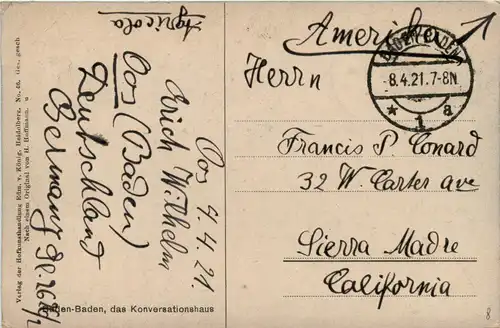 Agricola
Oos 7.4.21.
Erich Wilhelm
Oos (Baden)
Deutschland
Germany
Verlag der Hofkunsthandlung Edm. v. König, Heidelberg, No. 46. Ges. gesch
Nach einem Original von H. Hoffmann.
Baden-Baden, das Konversationshaus
Amerika
BADEN-BADEN
8.4.21.7-8N
* 1 a
Herrn
Francis P Conard
32 W. Carter ave
Sierra Madre
California
8